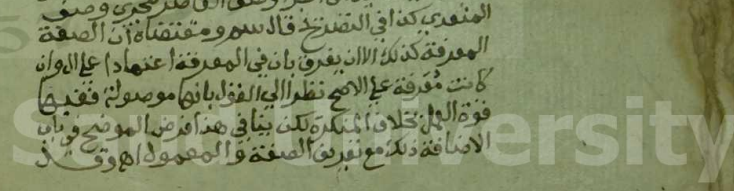 المتعدي كذا في التصريح قال سم ومقتضاه أن الصفة
المعرفة كذلك الا ان يفرق بان في المعرفة اعتمادا على ال وان
كانت معرفة على الاصح نظرا الى القول بانها موصولة ففيها
قوة العمل بخلاف المنكرة لكن ينافي هذا فرض الموضح في باب
الاضافة ذلك مع تعريف الصفة والمعمول اه وقد